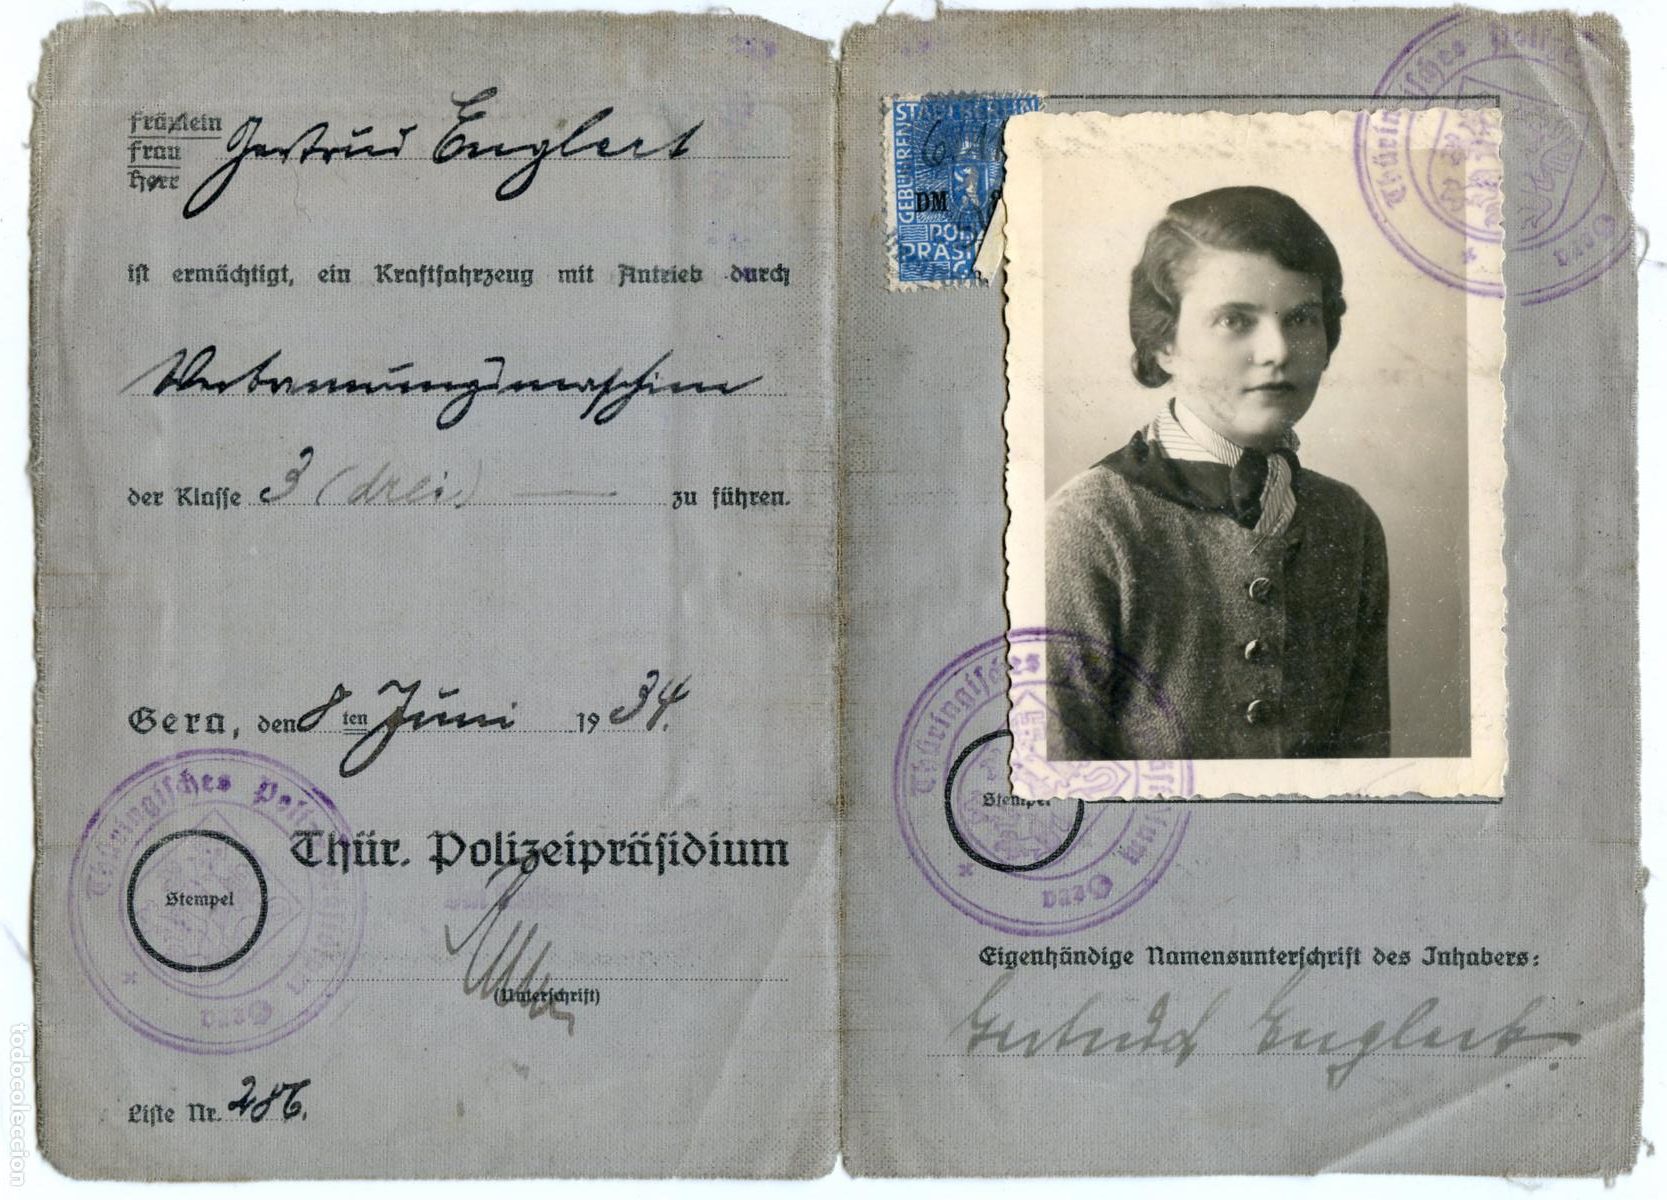 Fräulein
Frau
Herr
Gertrud Englert
ist ermächtigt, ein Kraftfahrzeug mit Antrieb durch
Verbrennungsmaschine
der Klasse 3 (drei) — zu führen.
Gera, den 8 ten Juni 1934.
Thür. Polizeipräsidium
Thüringisches
Gera
Stempel
(Unterschrift)
Liste Nr. 286.
GEBÜHREN
STADT BERLIN
6
DM
PRÄS
Thüringisches Polize
Gera
Thüringisches P
präsidium
Gera
Stempel
Eigenhändige Namensunterschrift des Inhabers:
Gertrud Englert
todocoleccion